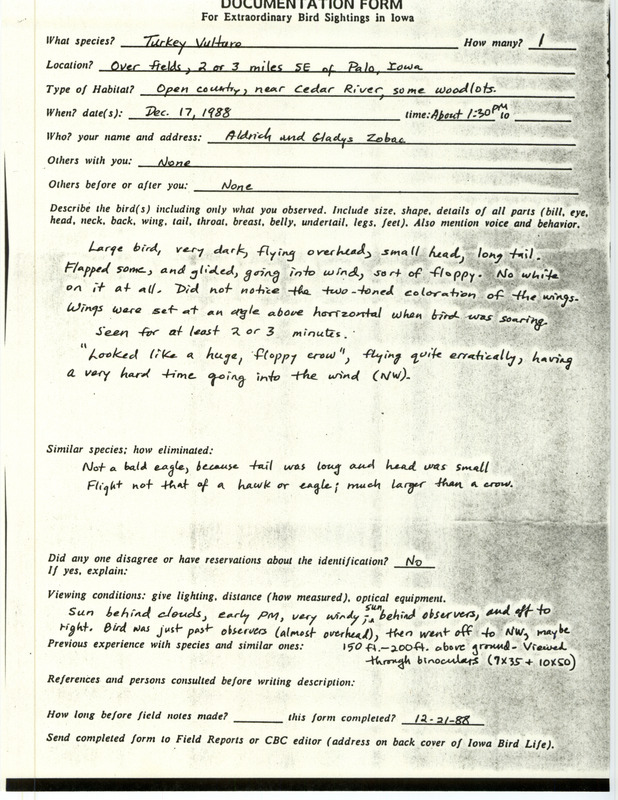 DOCUMENTATION FORM
For Extraordinary Bird Sightings in Iowa
What species? Turkey Vulture How many? 1
Location? Over fields, 2 or 3 miles SE of Palo, Iowa
Type of Habitat? Open country, near Cedar River, some woodlots.
When? date(s): Dec. 17, 1988 time: About 1:30 PM to
Who? your name and address: Aldrich and Gladys Zobac
Others with you: None
Others before or after you: None
Describe the bird(s) including only what you observed. Include size, shape, details of all parts (bill, eye,
head, neck, back, wing, tail, throat, breast, belly, undertail, legs, feet). Also mention voice and behavior.
Large bird, very dark, flying overhead, small head, long tail.
Flapped some, and glided, going into wind, sort of floppy. No white
on it at all. Did not notice the two-toned coloration of the wings.
Wings were set at an angle above horizontal when bird was soaring.
Seen for at least 2 or 3 minutes.
"Looked like a huge, floppy crow", flying quite erratically, having
a very hard time going into the wind (NW).
Similar species; how eliminated:
Not a bald eagle, because tail was long and head was small
Flight not that of a hawk or eagle; much larger than a crow.
Did any one disagree or have reservations about the identification? No
If yes, explain:
Viewing conditions: give lighting, distance (how measured), optical equipment.
Sun behind clouds, early PM, very windy, sun is behind observers, and off to
right. Bird was just past observers (almost overhead), then went off to NW, maybe
Previous experience with species and similar ones: 150 ft.-200 ft. above ground - Viewed
through binoculars (7x35 + 10x50)
References and persons consulted before writing description:
How long before field notes made? this form completed? 12-21-88
Send completed form to Field Reports or CBC editor (address on back cover of Iowa Bird Life).